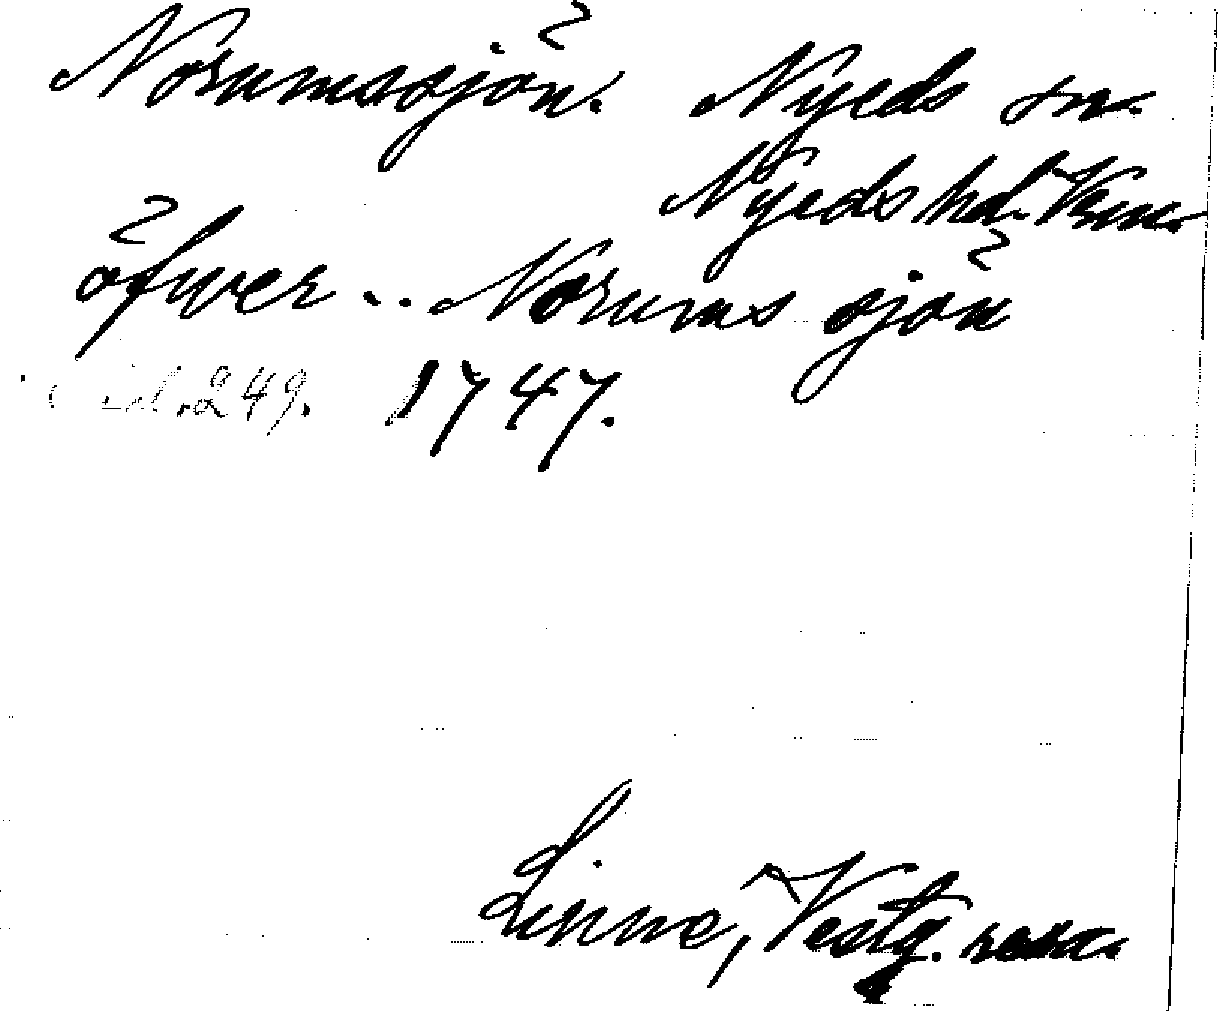 Norumssjön. Nyeds sn.
Nyeds hd. Vrm.
öfwer .. Norums sjön
sid. 249. 1747.
Linne, Vestg. resa.